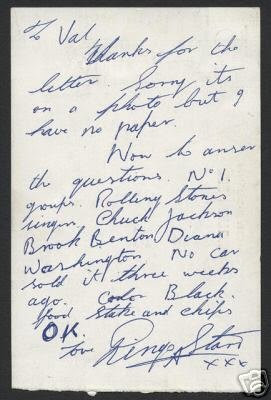 To Val
thanks for the
letter. Sorry its
on a photo but I
have no paper.
Now to anser
the questions. No 1.
groups. Rolling Stones
singers Chuck Jackson
Brook Benton Diana
Washington No car
sold it three weeks
ago. Color Black.
food Stake and chips
OK.
love Ringo Starr
xxx
eBay